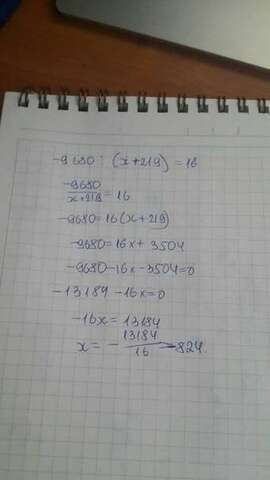 -9680 : (x+219) = 16
-9680/x+219 = 16
-9680=16(x+219)
-9680=16x+ 3504
-9680-16x-3504=0
-13184 -16x=0
-16x= 13184
x= - 13184/16 = -824.